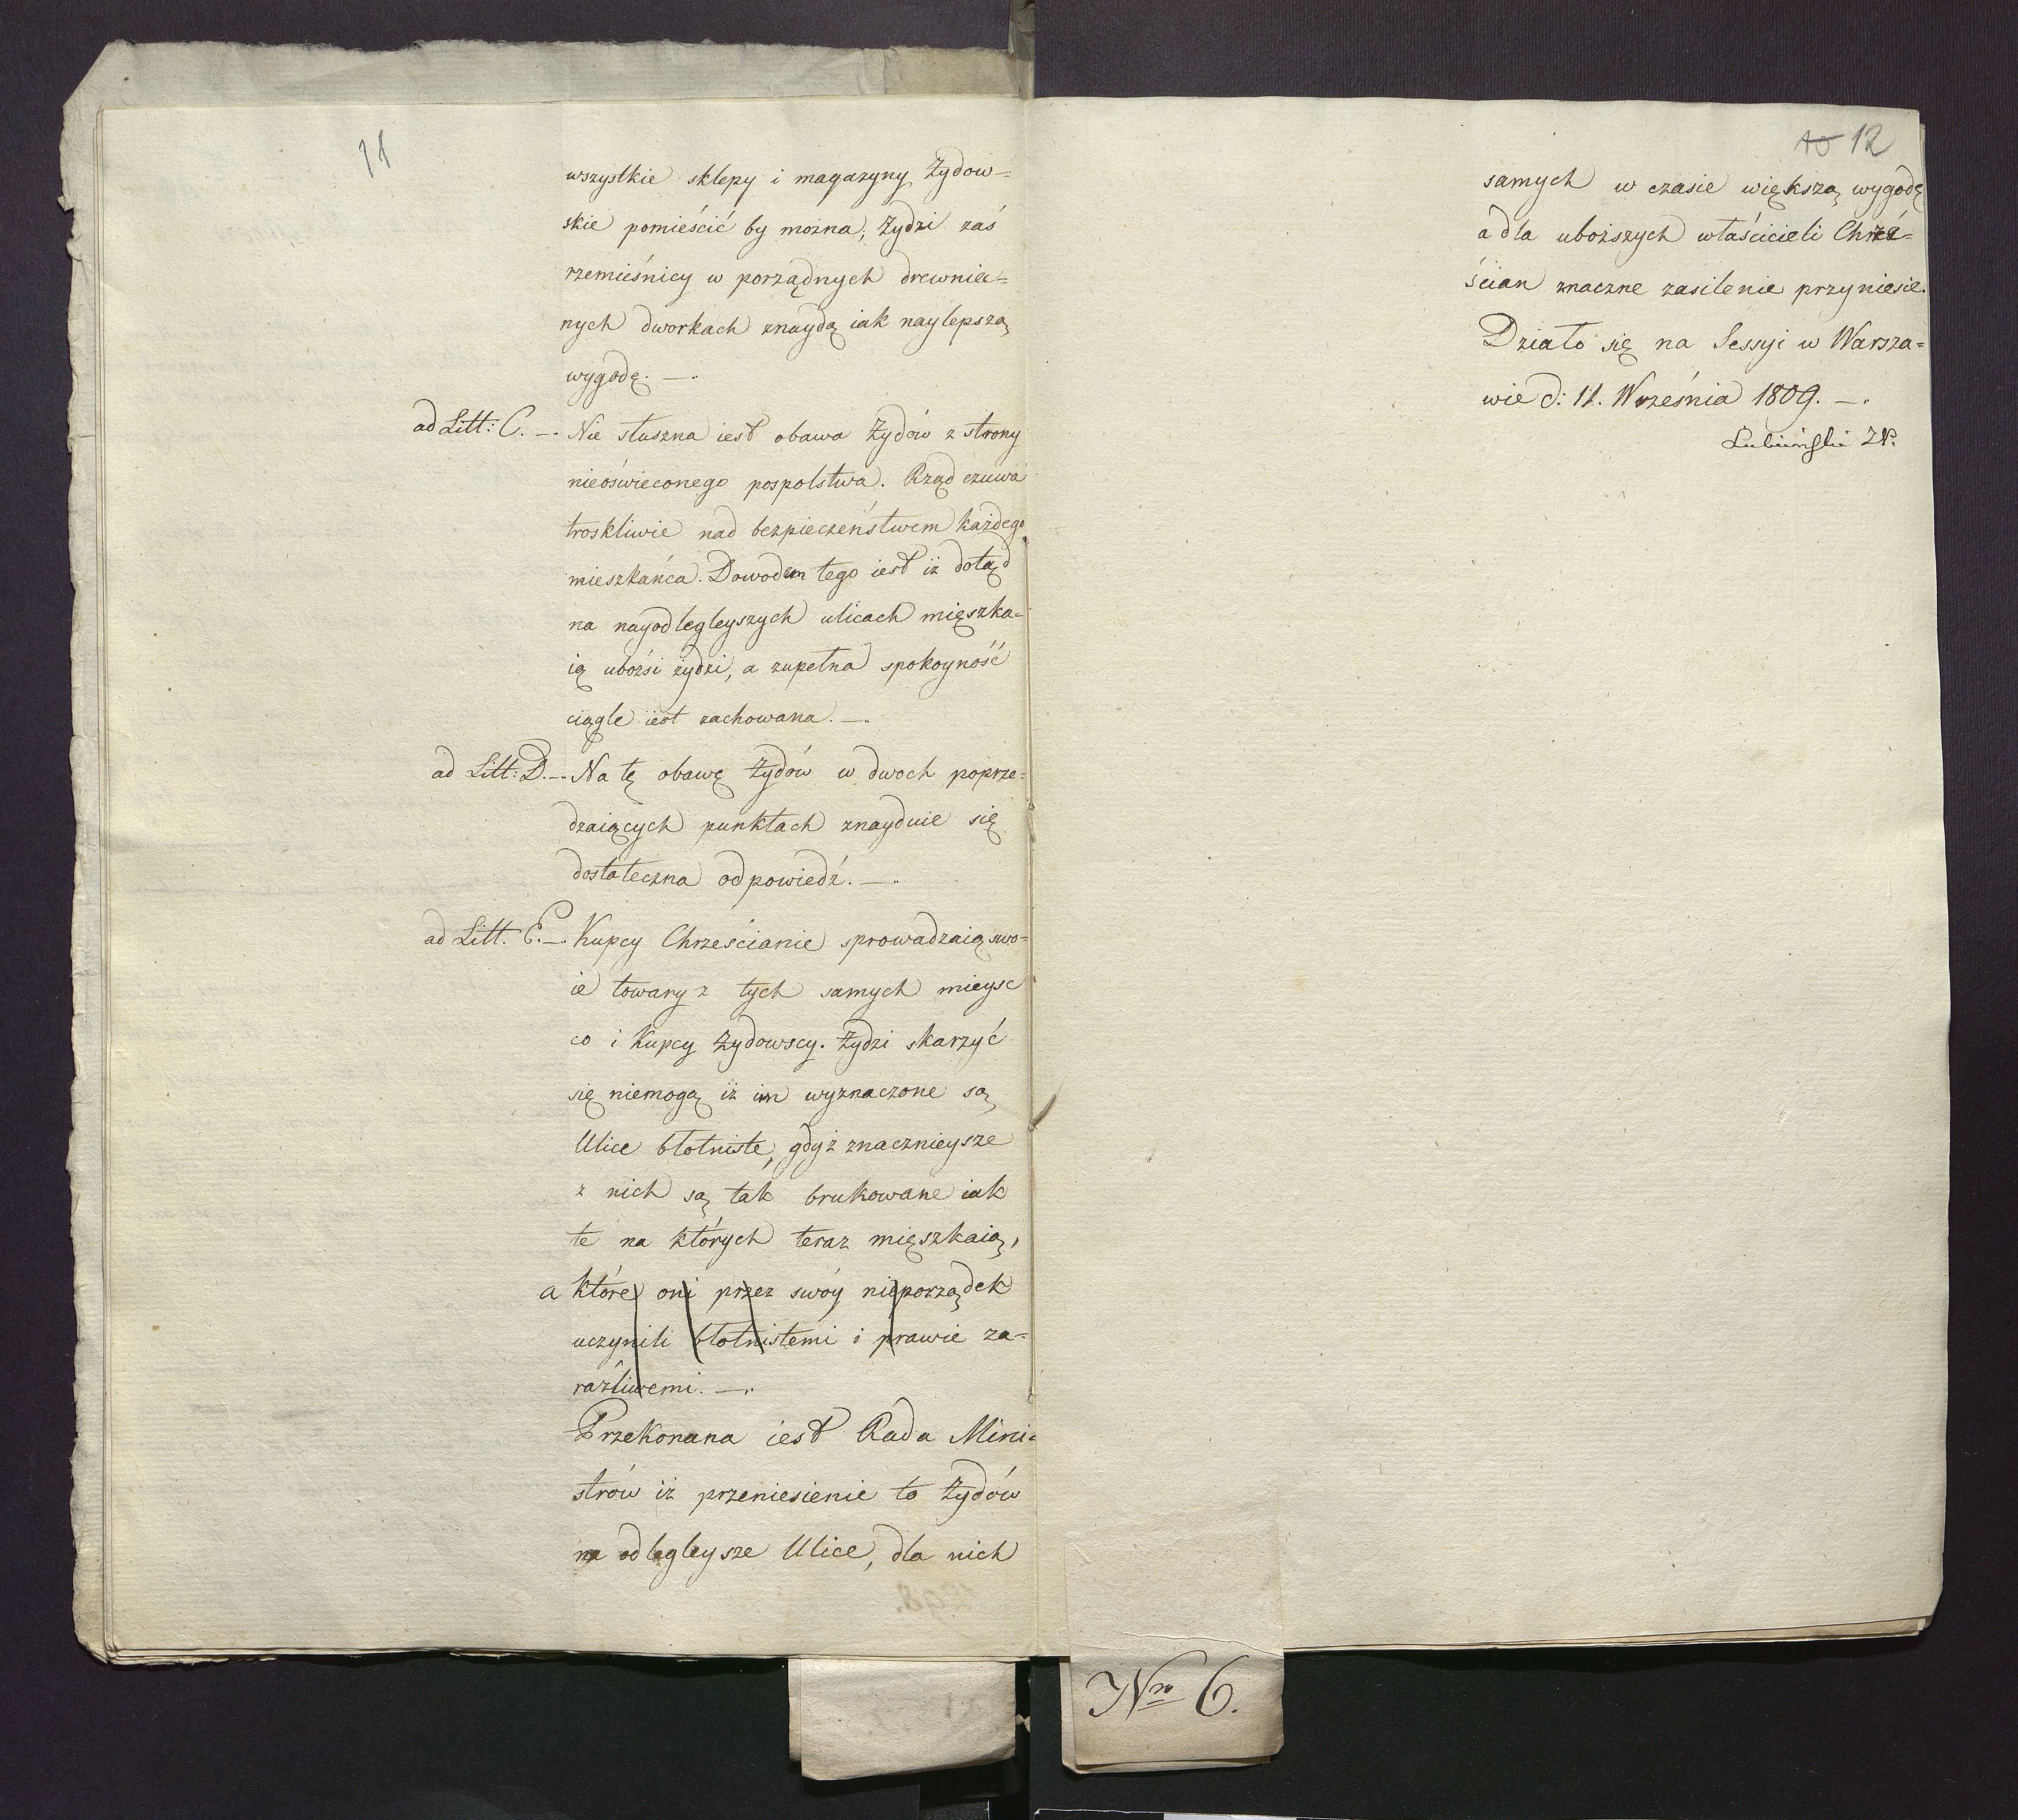 11
wszystkie sklepy i magazyny Żydow=
skie pomieścić by można, Żydzi zaś
rzemieśnicy w porządnych drewnia=
nych dworkach znaydą iak naylepszą
wygodę. —.
ad Litt: C. —. Nie słuszna iest obawa Żydów z strony
nieoświeconego pospolstwa. Rząd czuwa
troskliwie nad bezpieczeństwem każdego
mieszkańca. Dowodem tego iest iż dotąd
na nayodlegleyszych ulicach mięszka=
ią ubożsi żydzi, a zupełna spokoyność
ciągle iest zachowana. —.
ad Litt: D. —. Na tę obawę Żydów w dwoch poprze=
dzaiących punktach znayduie się
dostateczna odpowiedź. —.
ad Litt. E. —. Kupcy Chrześcianie sprowadzaią swo=
ie towary z tych samych mieysc
co i Kupcy Żydowscy. Żydzi skarzyć
się niemogą iż im wyznaczone są
Ulice błotniste, gdyż znacznieysze
z nich są tak brukowane iak
te na których teraz mięszkaią,
a które oni przez swóy nieporządek
uczynili błotnistemi i prawie za=
raźliwemi. —.
Przekonana iest Rada Mini=
strów iż przeniesienie to Żydów
na odlegleysze Ulice, dla nich
10 12
samych w czasie większą wygodę
a dla uboższych właścicieli Chrze=
ścian znaczne zasilenie przyniesie.
Działo się na Sessyi w Warsza=
wie d: 11. Września 1809. —.
Lubieński
Nro 6.